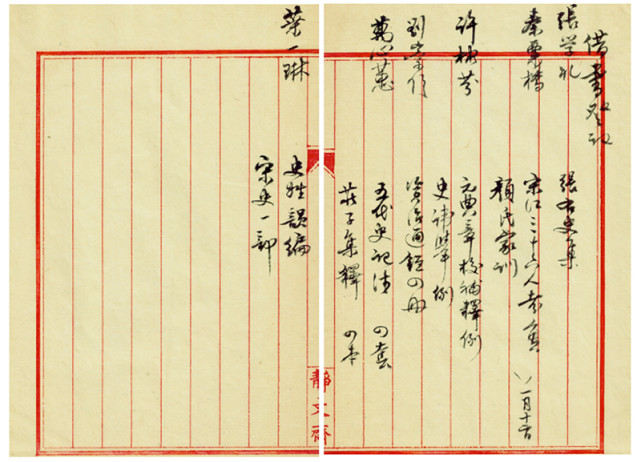 借書登記
張学礼 張右史集
宋江三十六人考實 一月十七日
顔氏家訓
許 芬 元典章校補釋例
史諱舉例
劉 資治通鑑四册
萬心蕙 五代史記注 四套
莊子集釋 四本
葉一琳 史姓韻編
宋史一部
静文齋